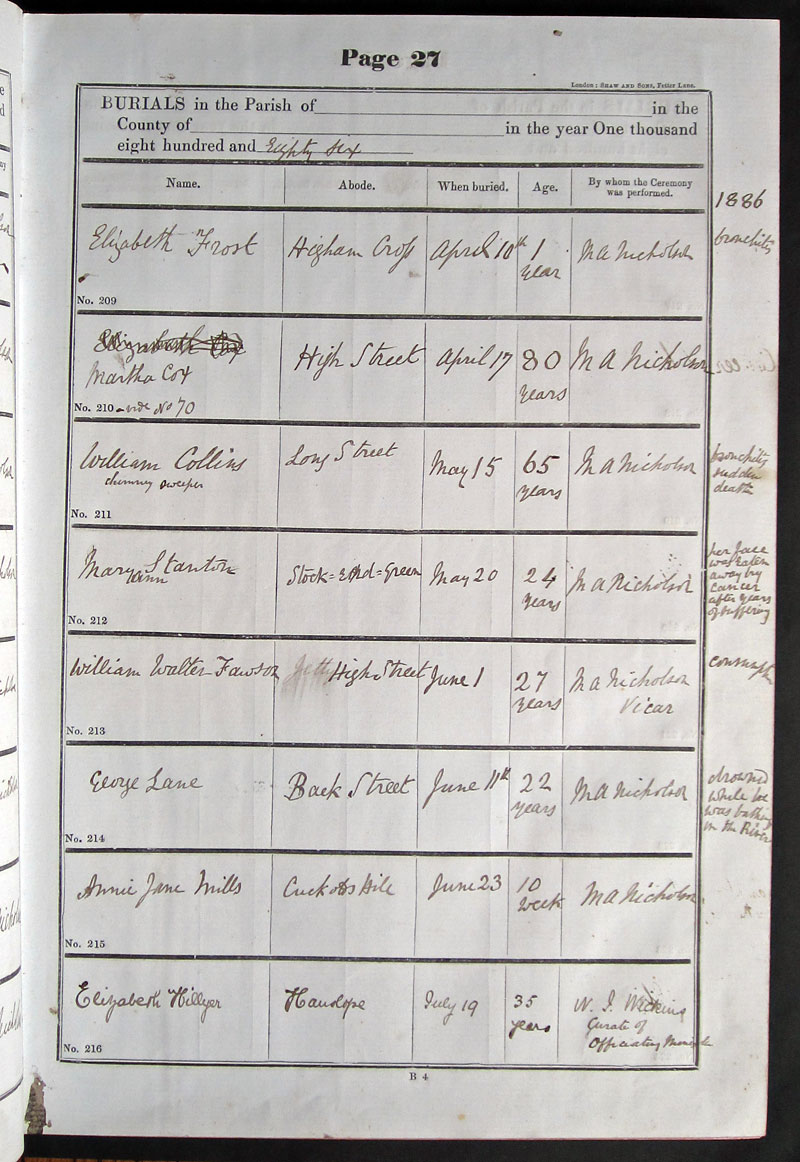 Page 27
London: SHAW AND SONS, Fetter Lane.
BURIALS in the Parish of in the
County of in the year One thousand
eight hundred and Eighty six
Name. Abode. When buried. Age. By whom the Ceremony was performed.
1886
Elizabeth Frost Higham Cross April 10th 1 year M A Nicholson bronchitis
No. 209
Martha Cox High Street April 17 80 years M A Nicholson
No. 210 vide No 70
William Collins Long Street May 15 65 years M A Nicholson bronchitis sudden death
chimney sweeper
No. 211
Mary Ann Stanton Stock=End=Green May 20 24 years M A Nicholson her face was eaten away by cancer after years of suffering
No. 212
William Walter Fawson High Street June 1 27 years M A Nicholson Vicar
No. 213
George Lane Back Street June 11th 22 years M A Nicholson drowned while he was bathing in the River
No. 214
Annie Jane Mills June 23 10 week M A Nicholson
No. 215
Elizabeth Hillyer Hanslope July 19 35 years Curate of Officiating
No. 216
B 4